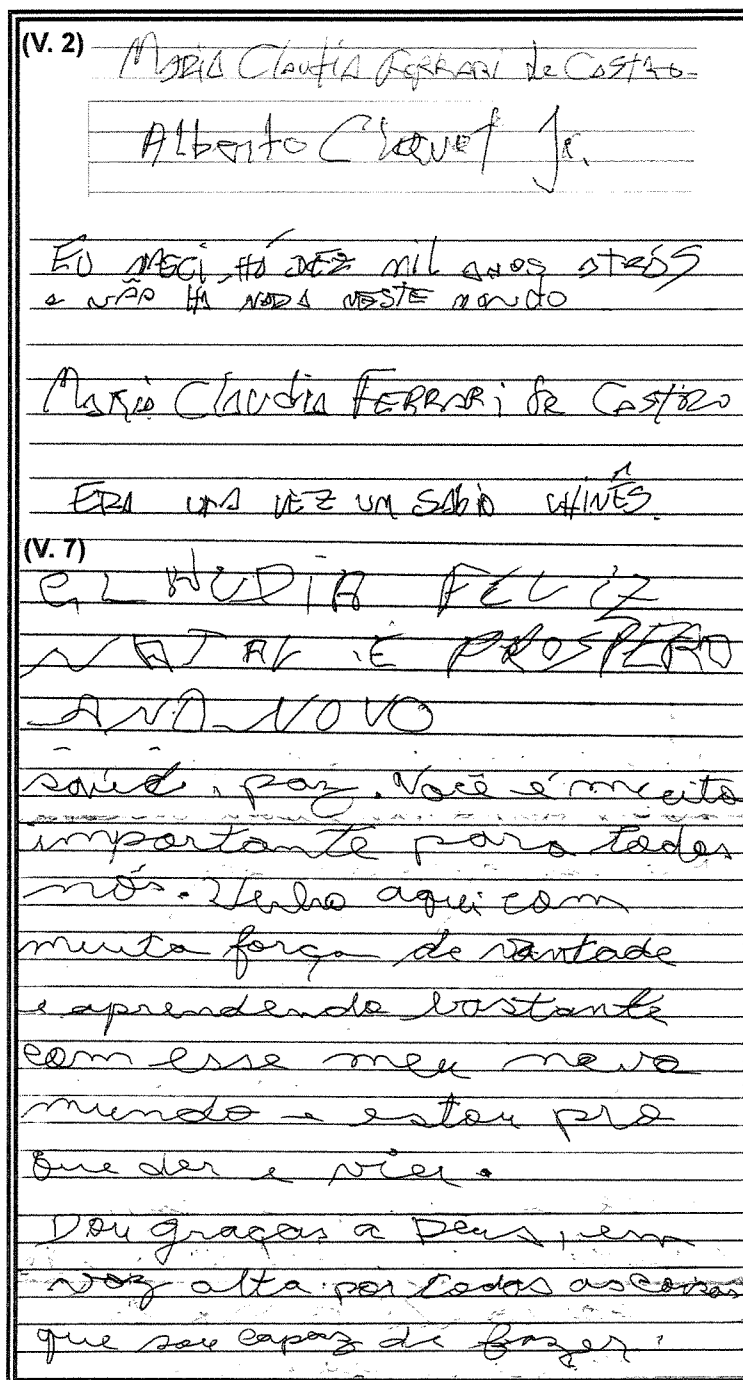 (V. 2)
MARIA ClAuDiA FERRARI de CASTRO
Alberto Chquet Jr.
EU NASCI HÁ DEZ mil anos atrás
e NÃO HÁ NADA NESTE mundo
MARIA ClAudiA FERRARi de CAStRo
ERA UMA VEZ UM SÁbiO CHINÊS.
(V. 7)
CLAUDIA FELIZ
NATAL E PROSPERO
ANO NOVO
saúd, paz. Você é muito
importante para todos
nós. Venho aqui com
muita força de vontade
e aprendendo bastante
com esse meu novo
mundo e estou pro
que der e vier.
Dou graças a Deus, em
voz alta por todas as coisas
que sou capaz de fazer.